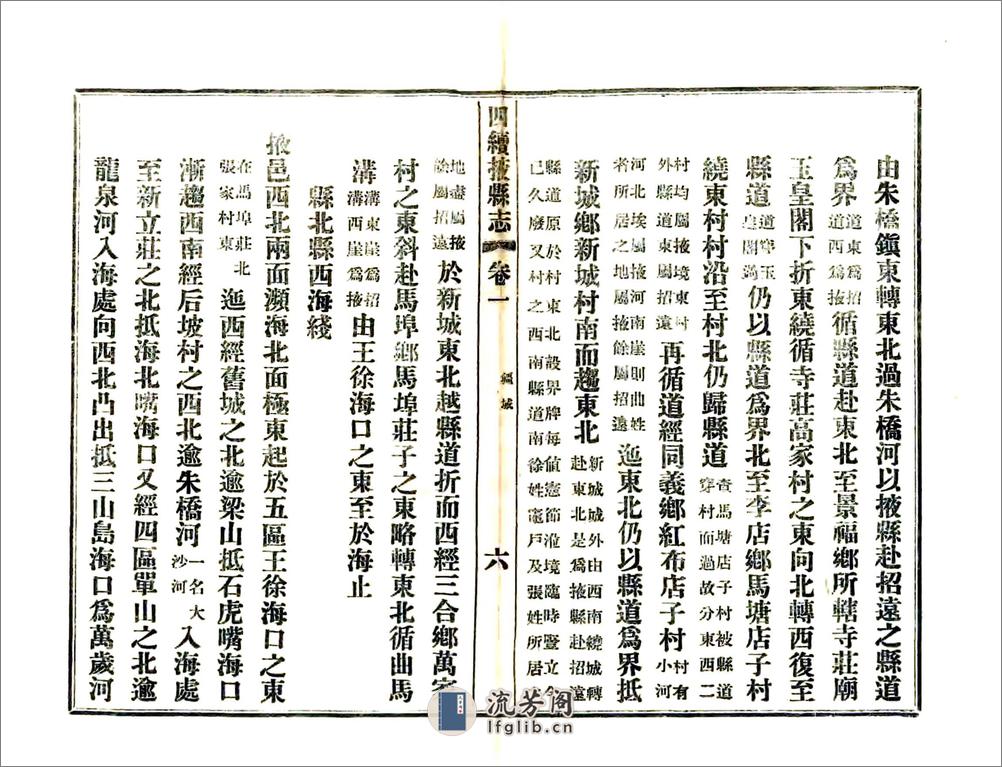 由朱橋鎮東轉東北過朱橋河以掖縣赴招遠之縣道
爲界道東爲招道西爲掖循縣道赴東北至景福鄉所轄寺莊廟
玉皇閣下折東繞循寺莊高家村之東向北轉西復至
縣道道穿玉皇閣過仍以縣道爲界北至李店鄉馬塘店子村
繞東村村沿至村北仍歸縣道查馬塘店子村被縣道穿村而過故分東西二
村均屬掖境東村外縣道東屬招遠再循道經同義鄉紅布店子村村有小河
河北埃屬掖河南崖則曲姓者所居之地屬掖餘屬招遠迤東北仍以縣道爲界抵
新城鄉新城村南而趨東北新城城外由西南繞城轉赴東北是爲掖縣赴招遠
縣道原於村東北設界牌每値憲節蒞境臨時豎立今已久廢又村之西南縣道南徐姓竈戶及張姓所居
四續掖縣志
卷一
疆域
六
地盡屬掖餘屬招遠於新城東北越縣道折而西經三合鄉萬家
村之東斜赴馬埠鄉馬埠莊子之東略轉東北循曲馬
溝溝東崖爲招溝西崖爲掖由王徐海口之東至於海止
縣北縣西海綫
掖邑西北兩面瀕海北面極東起於五區王徐海口之東
在馬埠莊北張家村東迤西經舊城之北逾梁山抵石虎嘴海口
漸趨西南經后坡村之西北逾朱橋河一名大沙河入海處
至新立莊之北抵海北嘴海口又經四區單山之北逾
龍泉河入海處向西北凸出抵三山島海口爲萬歲河
流芳阁
lfglib.cn